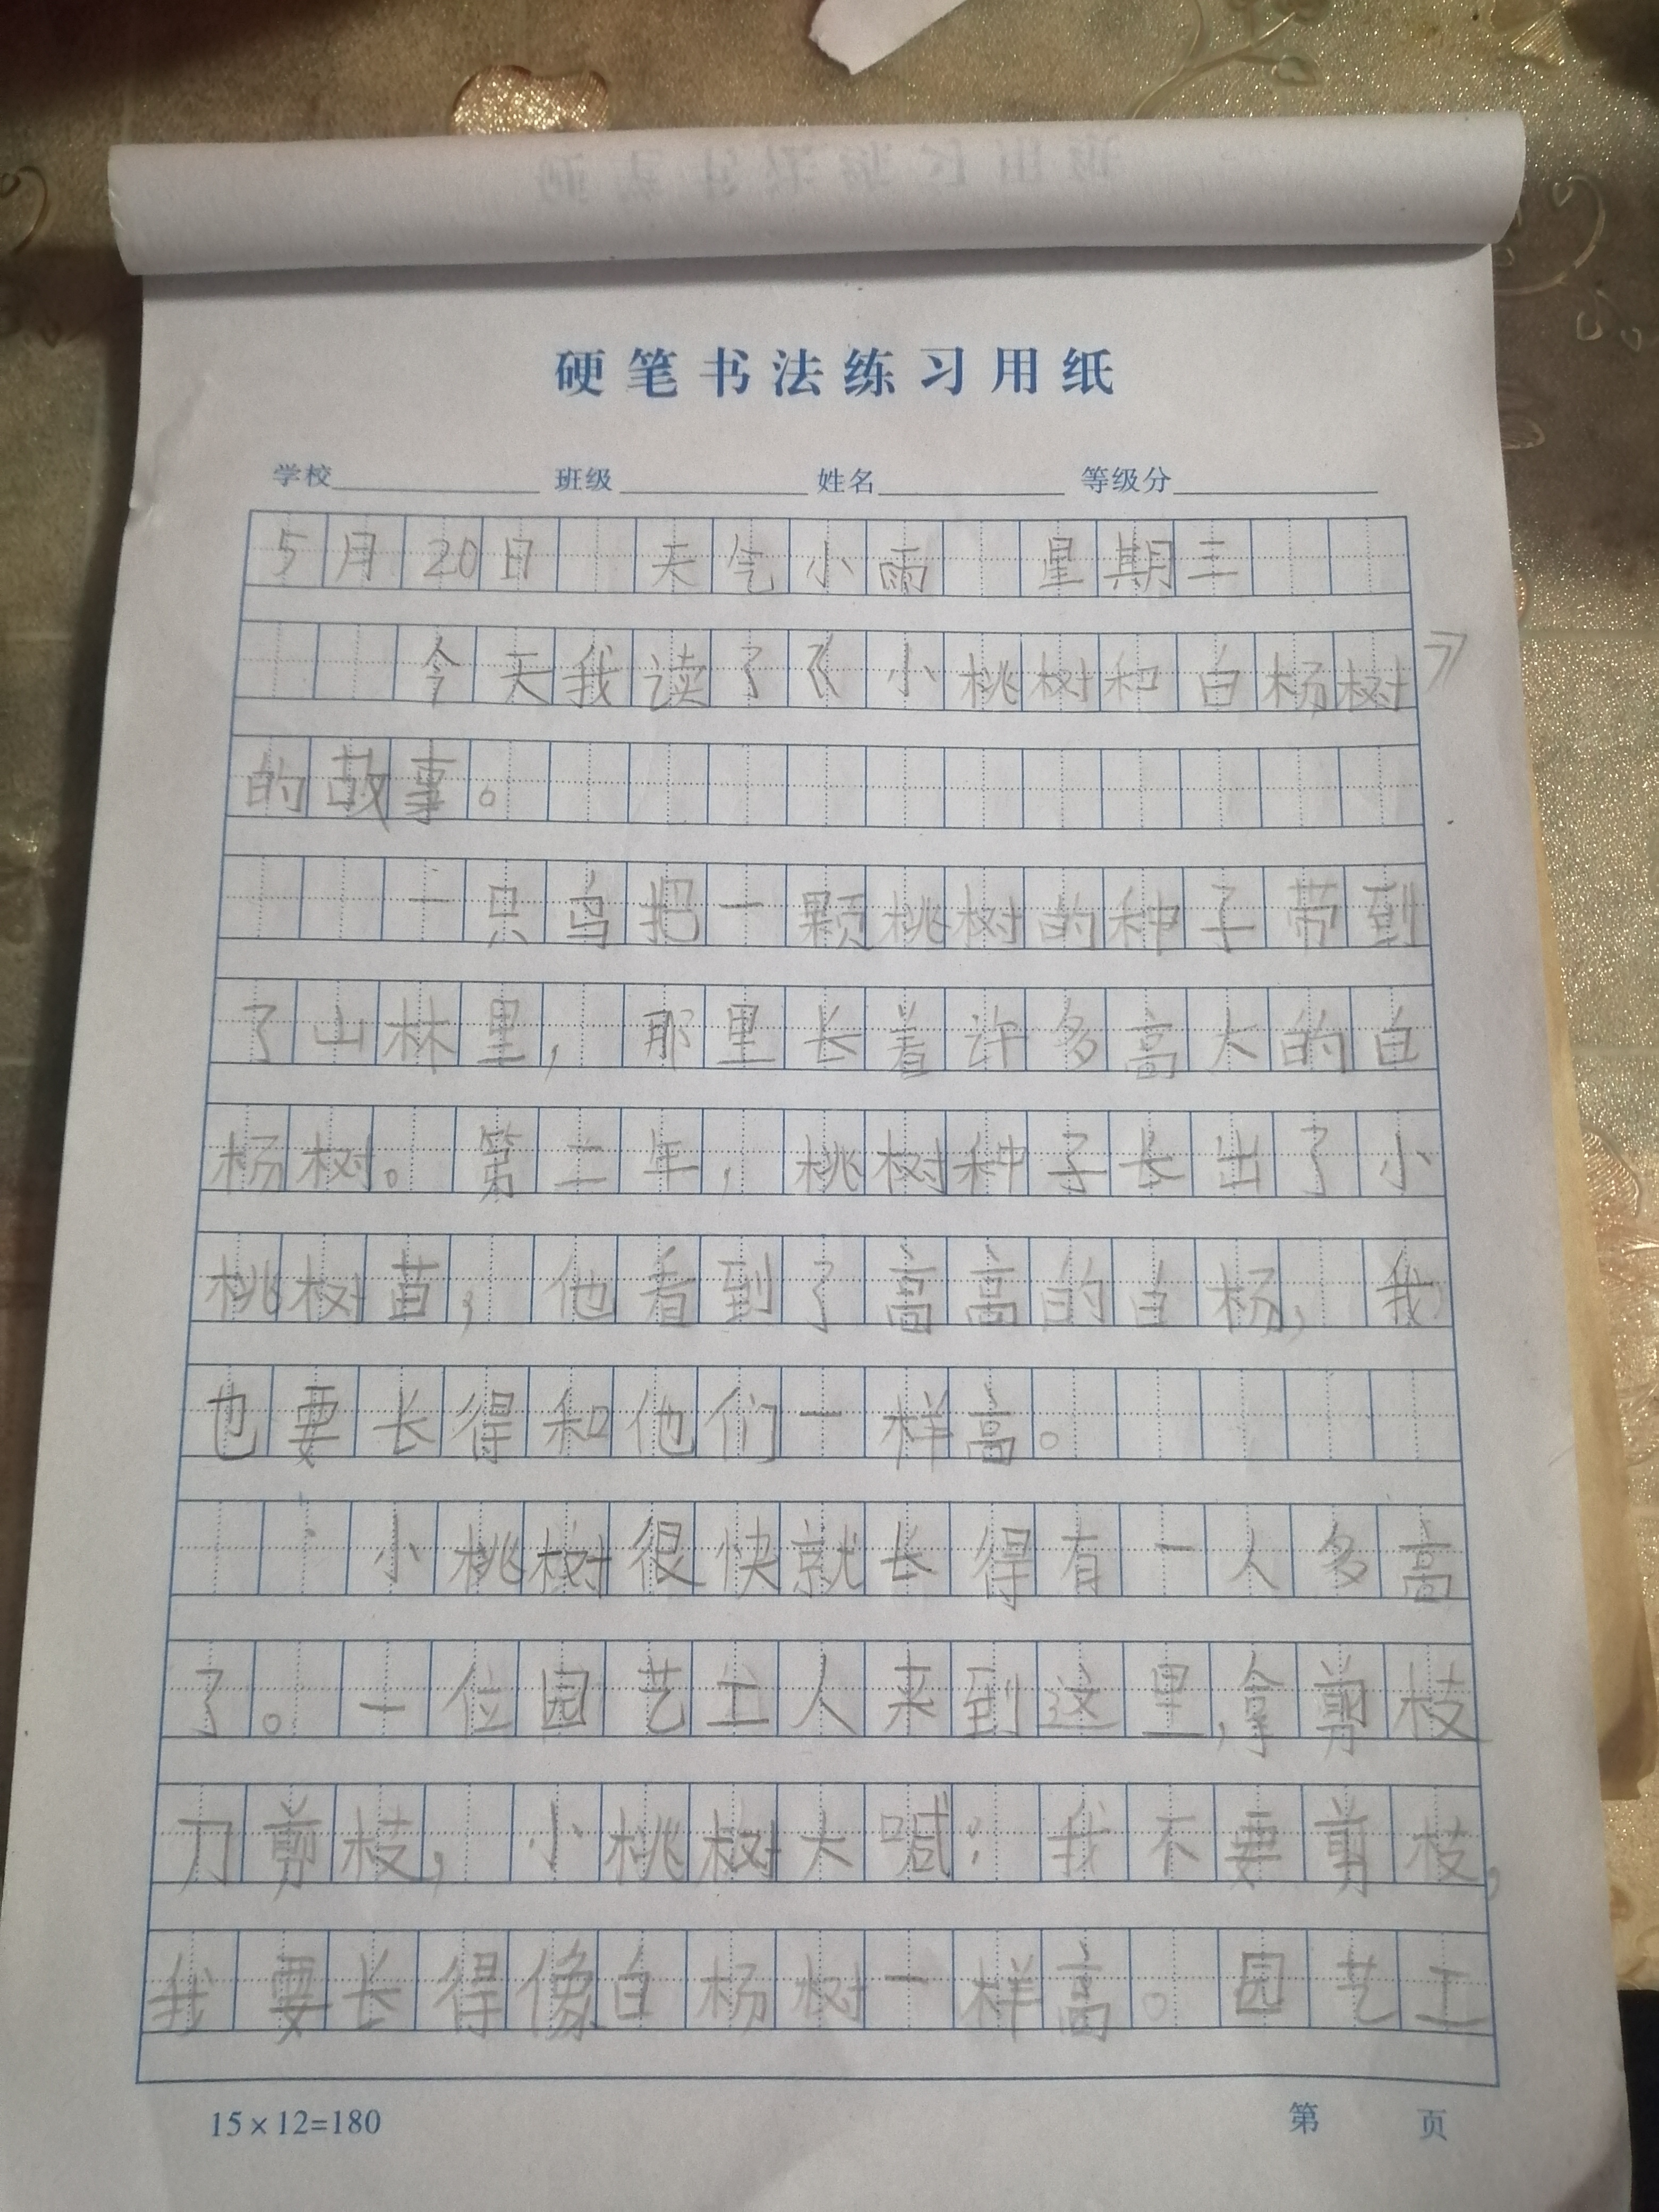 硬笔书法练习用纸
学校 班级 姓名 等级分
5月20日 天气小雨 星期三
今天我读了《小桃树和白杨树》
的故事。
一只鸟把一颗桃树的种子带到
了山林里，那里长着许多高大的白
杨树。第二年，桃树种子长出了小
桃树苗，他看到了高高的白杨，我
也要长得和他们一样高。
小桃树很快就长得有一人多高
了。一位园艺工人来到这里，拿剪枝
刀剪枝，小桃树大喊：我不要剪枝，
我要长得像白杨树一样高。园艺工
15×12=180
第 页